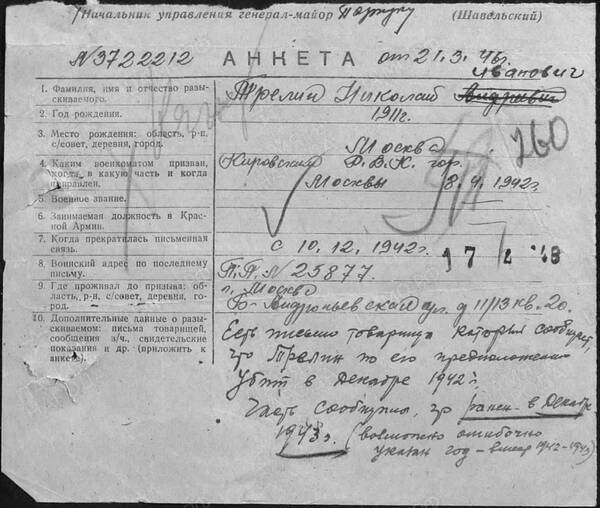 Начальник управления генерал-майор
(Шавельский)
№3722212 АНКЕТА от 21.3.46г.
Иванович
1. Фамилия, имя и отчество разыскиваемого.
Трелин Николай Андреевич
2. Год рождения.
1911г.
3. Место рождения: область, р-н, с/совет, деревня, город.
Москва
260
4. Каким военкоматом призван, когда, в какую часть и когда направлен.
Кировским Р.В.К. гор.
Москвы 8.4.1942г.
5. Военное звание.
6. Занимаемая должность в Красной Армии.
7. Когда прекратилась письменная связь.
с 10.12.1942г.
17 48
8. Воинский адрес по последнему письму.
П.П. № 25877
9. Где проживал до призыва: область, р-н, с/совет, деревня, город.
г. Москва
Б-Андроньевская ул. д 11/13 кв. 20.
10. Дополнительные данные о разыскиваемом: письма товарищей, сообщения в/ч., свидетельские показания и др. (приложить к анкете).
Есть письмо товарища который сообщает,
что Трелин по его предположению
убит в декабре 1942г.
Часть сообщила, что ранен в декабре
1943г. (возможно ошибочно
указан год – вместо 1942-1943)